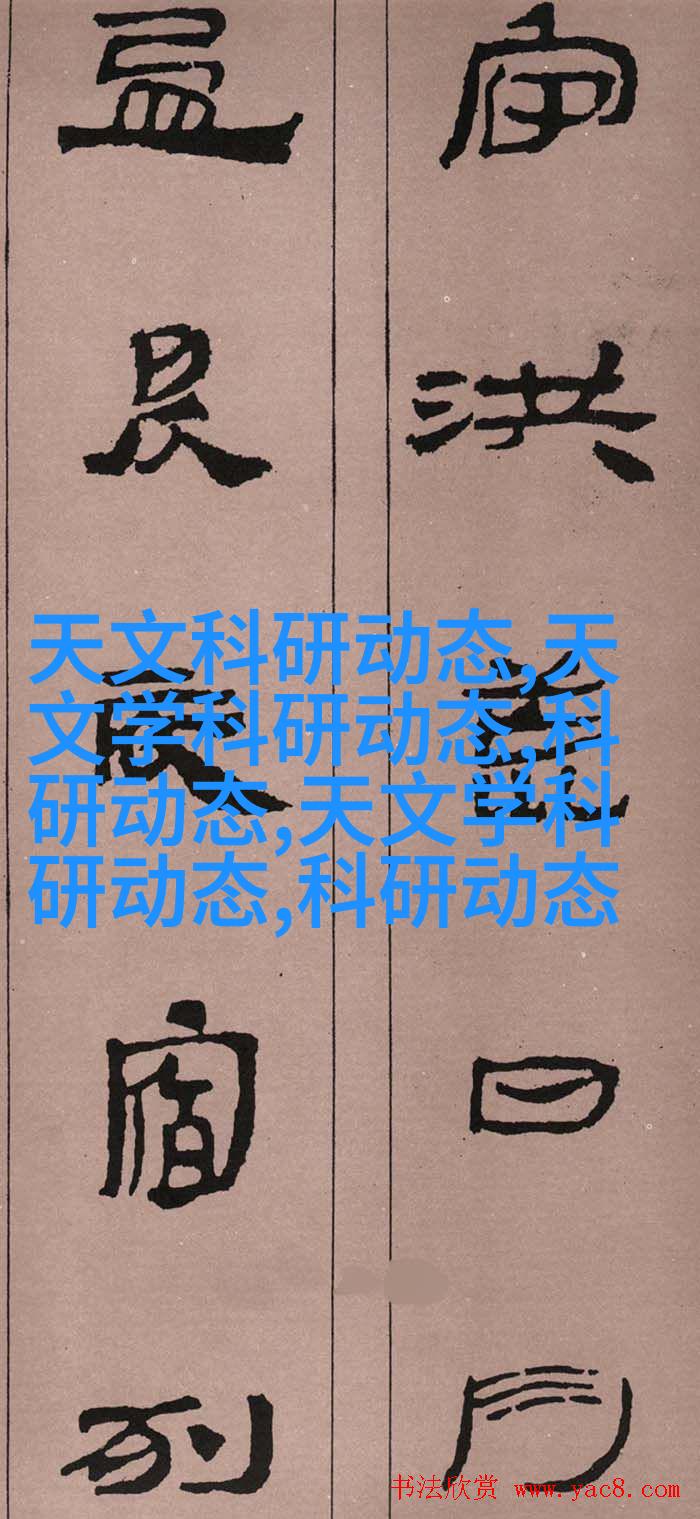 宇洪荒日月
盈昃辰宿列
天文科研动态,天
文学科研动态,科
研动态,天文学科
研动态,科研动态
书法欣赏 www.yac8.com